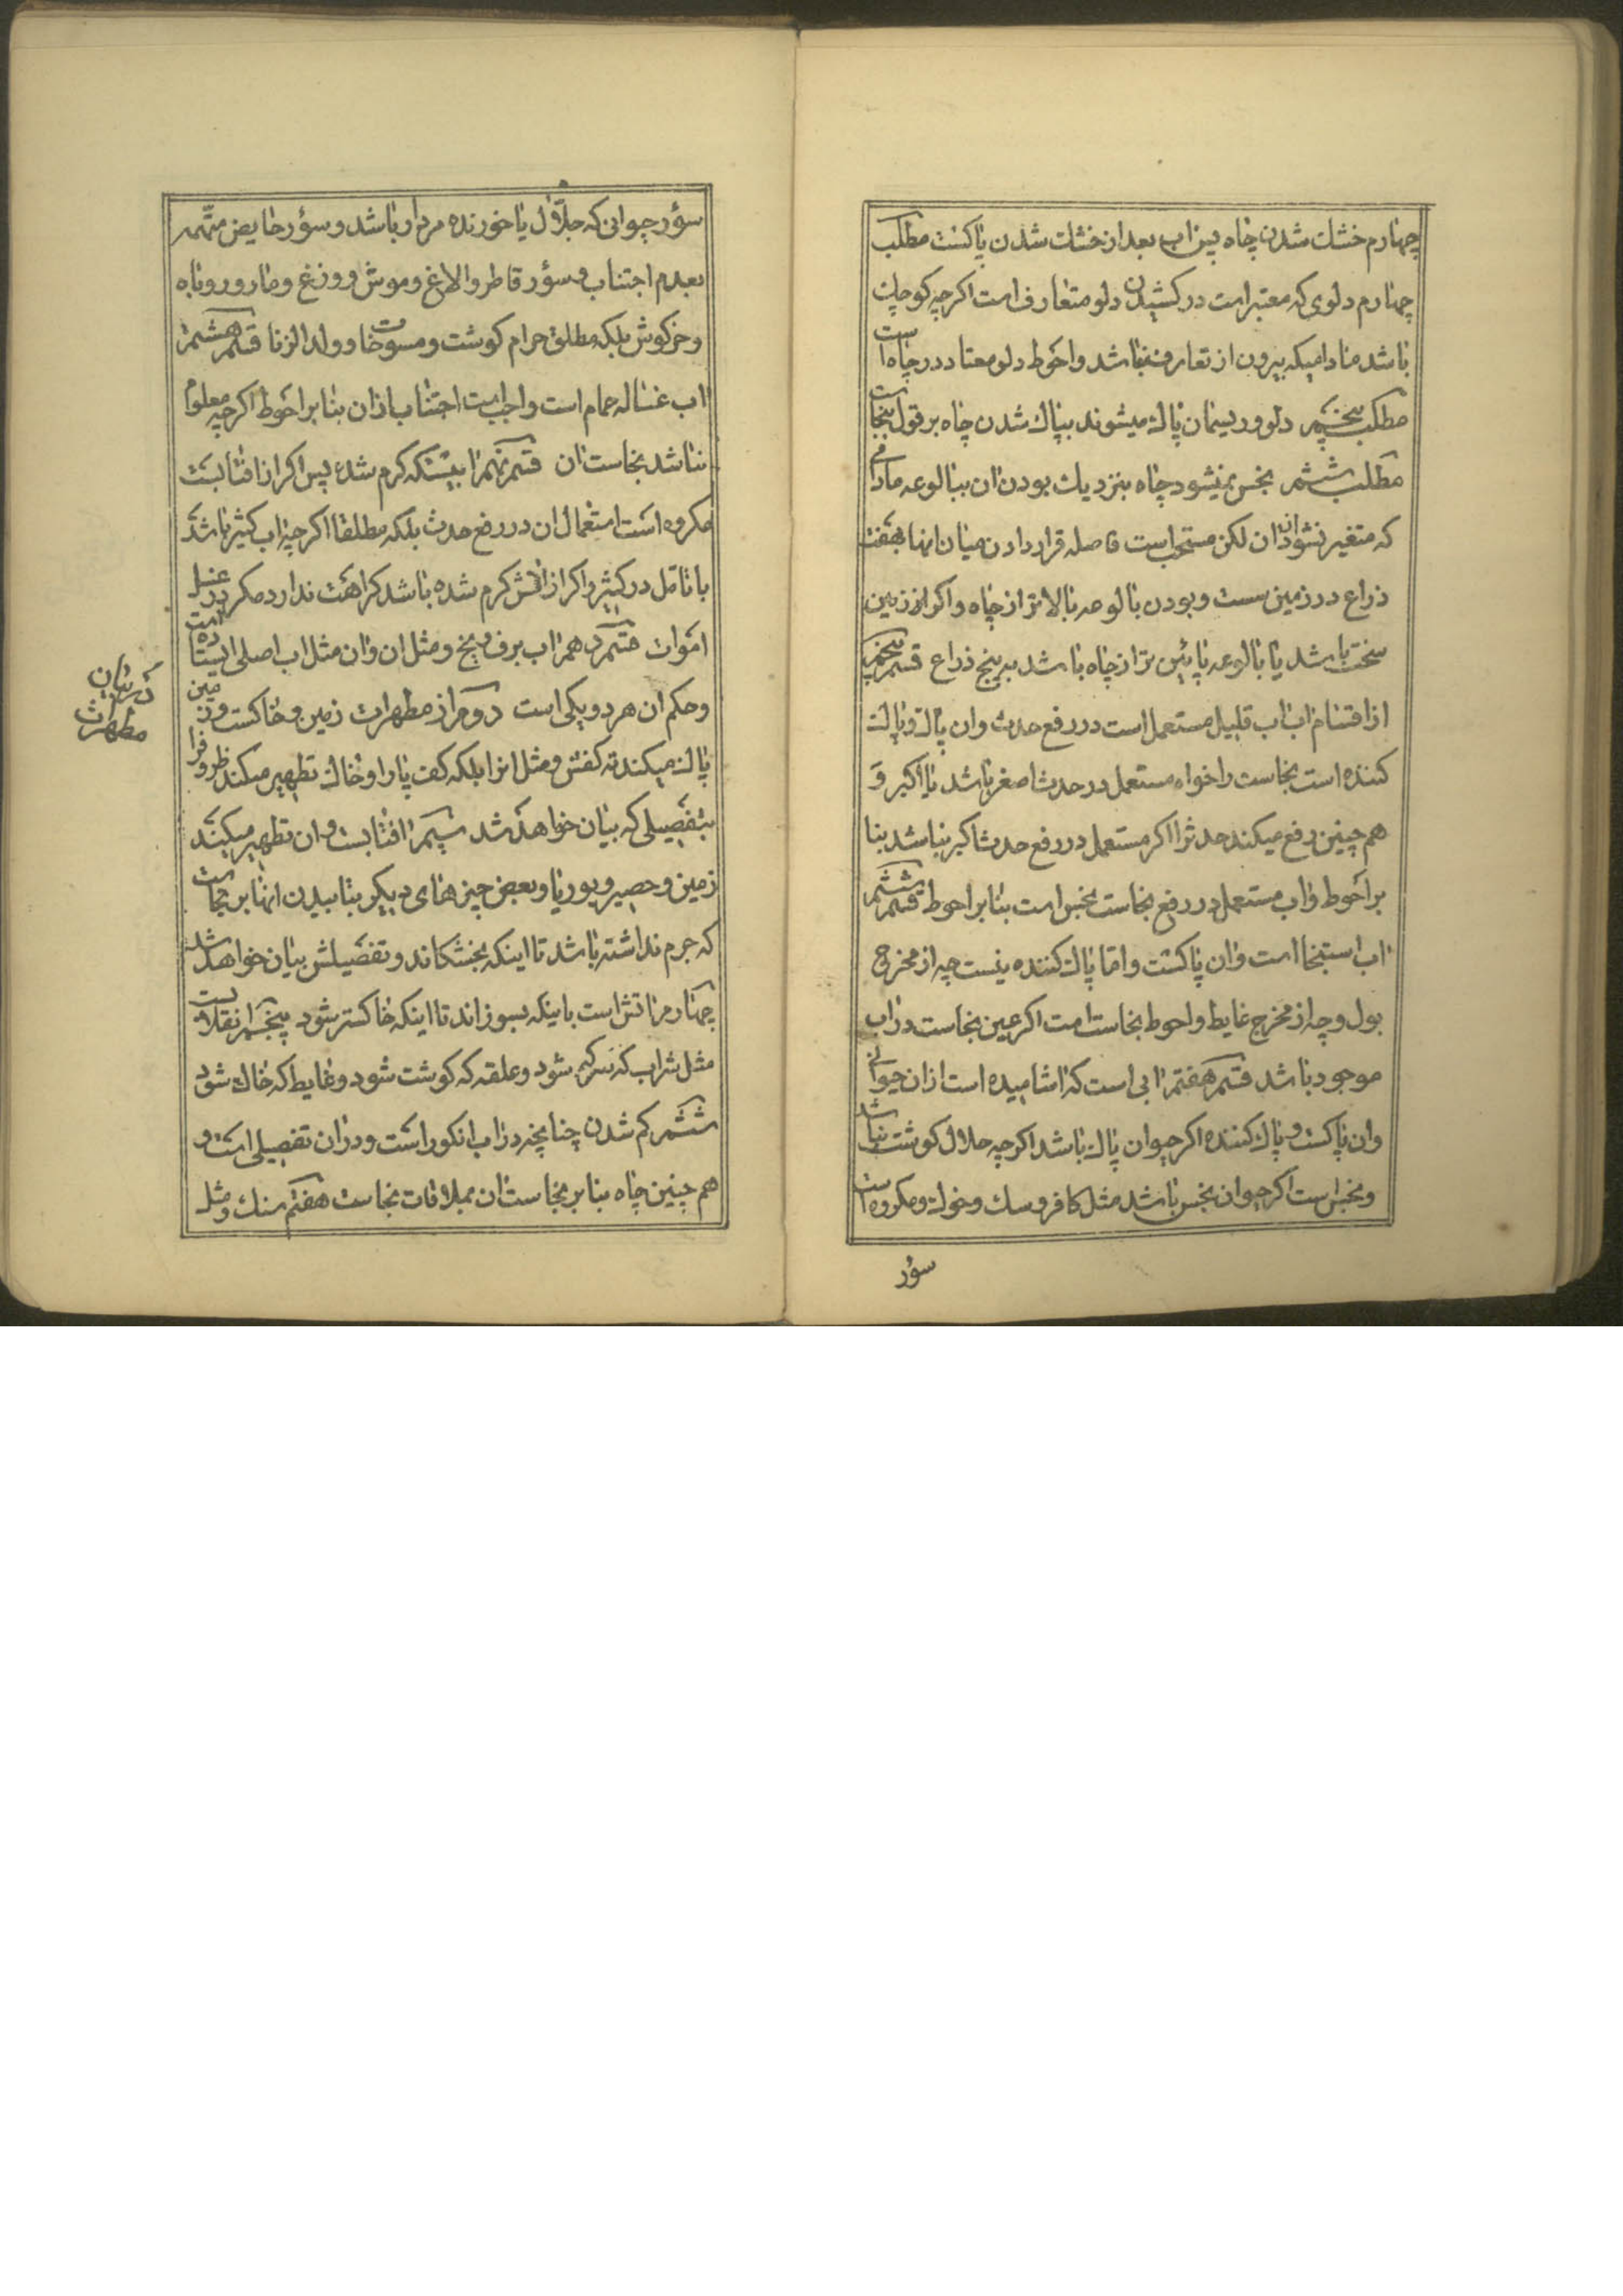 چهارم خشك شدن چاه پس اب بعد از خشك شدن پاكست مطلب
چهارم دلوی که معتبر است در کشیدن دلو متعارف است اکرچه کوچك
باشد مادامیکه بیرون از تعارف نباشد واحوط دلو معتاد در چاه است
مطلب پنجم دلو وریسمان پاك میشوند بپاك شدن چاه بر قول بنجاست
مطلب ششم نجس نمیشود چاه بنزدیك بودن ان ببالوعه مادامی
که متغیر نشود از ان لکن مستحب است فاصله قرار دادن میان انها بهفت
ذراع در زمین سست و بودن بالوعه بالاتر از چاه واکر از زمین
سخت باشد یا بالوعه پائین تر از چاه باشد به پنج ذراع قسم پنجم
از اقسام اب اب قلیل مستعمل است در رفع حدث وان پاك وپاك
کننده است نجاست را خواه مستعمل در حدث اصغر باشد یا اکبر و
هم چنین رفع میکند حدث را اکر مستعمل در رفع حدث اکبر نباشد بنا
بر احوط واب مستعمل در رفع نجاست نجس است بنا بر احوط قسم ششم
اب استنجا است وان پاکست واما پاك کننده نیست چه از مخرج
بول وچه از مخرج غایط واحوط نجاست است اکر عین نجاست در اب
موجود باشد قسم هفتم ابی است که اشامیده است از ان حیوانی
وان پاکست وپاك کننده اکر حیوان پاك باشد اکرچه حلال کوشت نباشد
ونجس است اکر حیوان نجس باشد مثل کافر وسك وخوك ومکروه است
سؤر
سؤر حیوانی که جلّال یا خورنده مردار باشد و سؤر حایض متّهمه
بعدم اجتناب و سؤر قاطر والاغ وموش ووزغ ومار وروباه
وخرکوش بلکه مطلق حرام کوشت ومسوخات وولد الزنا قسم هشتم
اب غساله حمام است واجب است اجتناب از ان بنا بر احوط اکرچه معلوم
نباشد نجاست ان قسم نهم ابیستکه کرم شده پس اکر از افتابست
مکروه است استعمال ان در رفع حدث بلکه مطلقا اکرچه اب کثیر باشد
با تامل در کثیر واکر از اتش کرم شده باشد کراهت ندارد مکر در غسل
اموات قسم دهم اب برف ویخ ومثل ان وان مثل اب اصلی ایستاده است
وحکم ان هر دو یکی است دویم از مطهرات زمین وخاکست وزمین
پاك میکند ته کفش ومثل انرا بلکه کف پا را وخاك تطهیر میکند ظروف را
بتفصیلی که بیان خواهد شد سیّم افتابست وان تطهیر میکند
زمین وحصیر وبوریا وبعض چیزهای دیکر بتابیدن انها بر نجاست
که جرم نداشته باشد تا اینکه بخشکاند وتفصیلش بیان خواهد شد
چهارم اتش است باینکه بسوزاند تا اینکه خاکستر شود پنجم انقلابست
مثل شراب که سرکه شود وعلقه که کوشت شود وغایط که خاك شود
ششم کم شدن چنانچه در اب انکور است ودر ان تفصیلی است و
هم چنین چاه بنا بر نجاست ان بملاقات نجاست هفتم سنك ومثل
در بیان
مطهرات